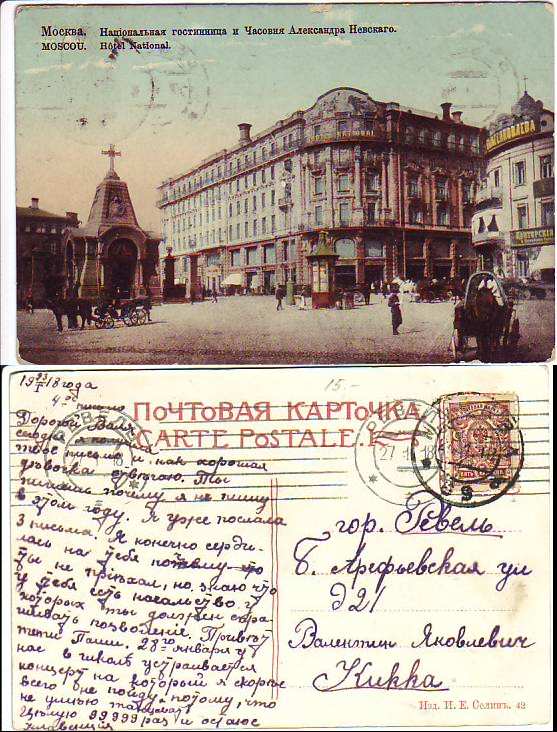 Москва. Національная гостинница и Часовня Александра Невскаго.
MOSCOU. Hôtel National.
NATIONAL
19 23/I 18 года
4-ое письмо
Дорогой Валя
сегодня я получила
твое письмо и как хорошая
девочка отвечаю. Ты
пишешь почему я не пишу
в этом году. Я уже послала
3 письма. Я конечно серди-
лась на тебя почему-то
ты не приехал, но знаю что
у тебя есть начальство у
которых ты должен спра-
шивать позволения. Привет
тети Паши. 28го января у
нас в школе устраивается
концерт на который я скорее
всего не пойду потому, что
не умею танцевать
Целую 99999 раз и остаюс
Клавдия
15.-
ПОЧТОВАЯ КАРТОЧКА
CARTE POSTALE.
27 1 18
гор. Ревель
Б. Арефьевская ул
д 21
Валентин Яковлевич
Кикка
Изд. П. Е. Селинъ. 42